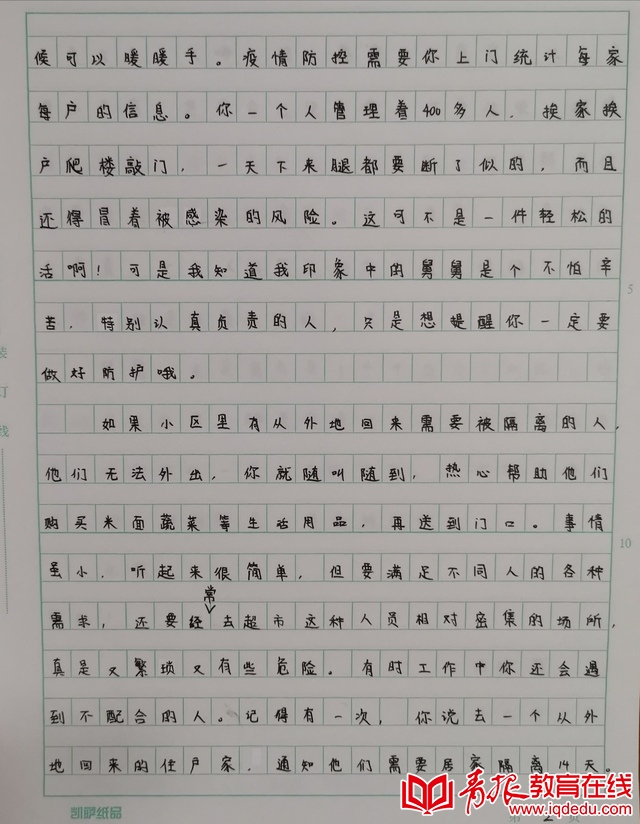 候可以暖暖手。疫情防控需要你上门统计每家
每户的信息。你一个人管理着400多人，挨家挨
户爬楼敲门，一天下来腿都要断了似的，而且
还得冒着被感染的风险。这可不是一件轻松的
活啊！可是我知道我印象中的舅舅是个不怕辛
5
苦，特别认真负责的人，只是想提醒你一定要
做好防护哦。
如果小区里有从外地回来需要被隔离的人，
他们无法外出，你就随叫随到，热心帮助他们
购买米面蔬菜等生活用品，再送到门口。事情
10
虽小，听起来很简单，但要满足不同人的各种
常
需求，还要经去超市这种人员相对密集的场所，
真是又繁琐又有些危险。有时工作中你还会遇
到不配合的人。记得有一次，你说去一个从外
地回来的住户家，通知他们需要居家隔离14天。
装
订
线
凯萨纸品
第 2 页
青报教育在线
www.iqdedu.com